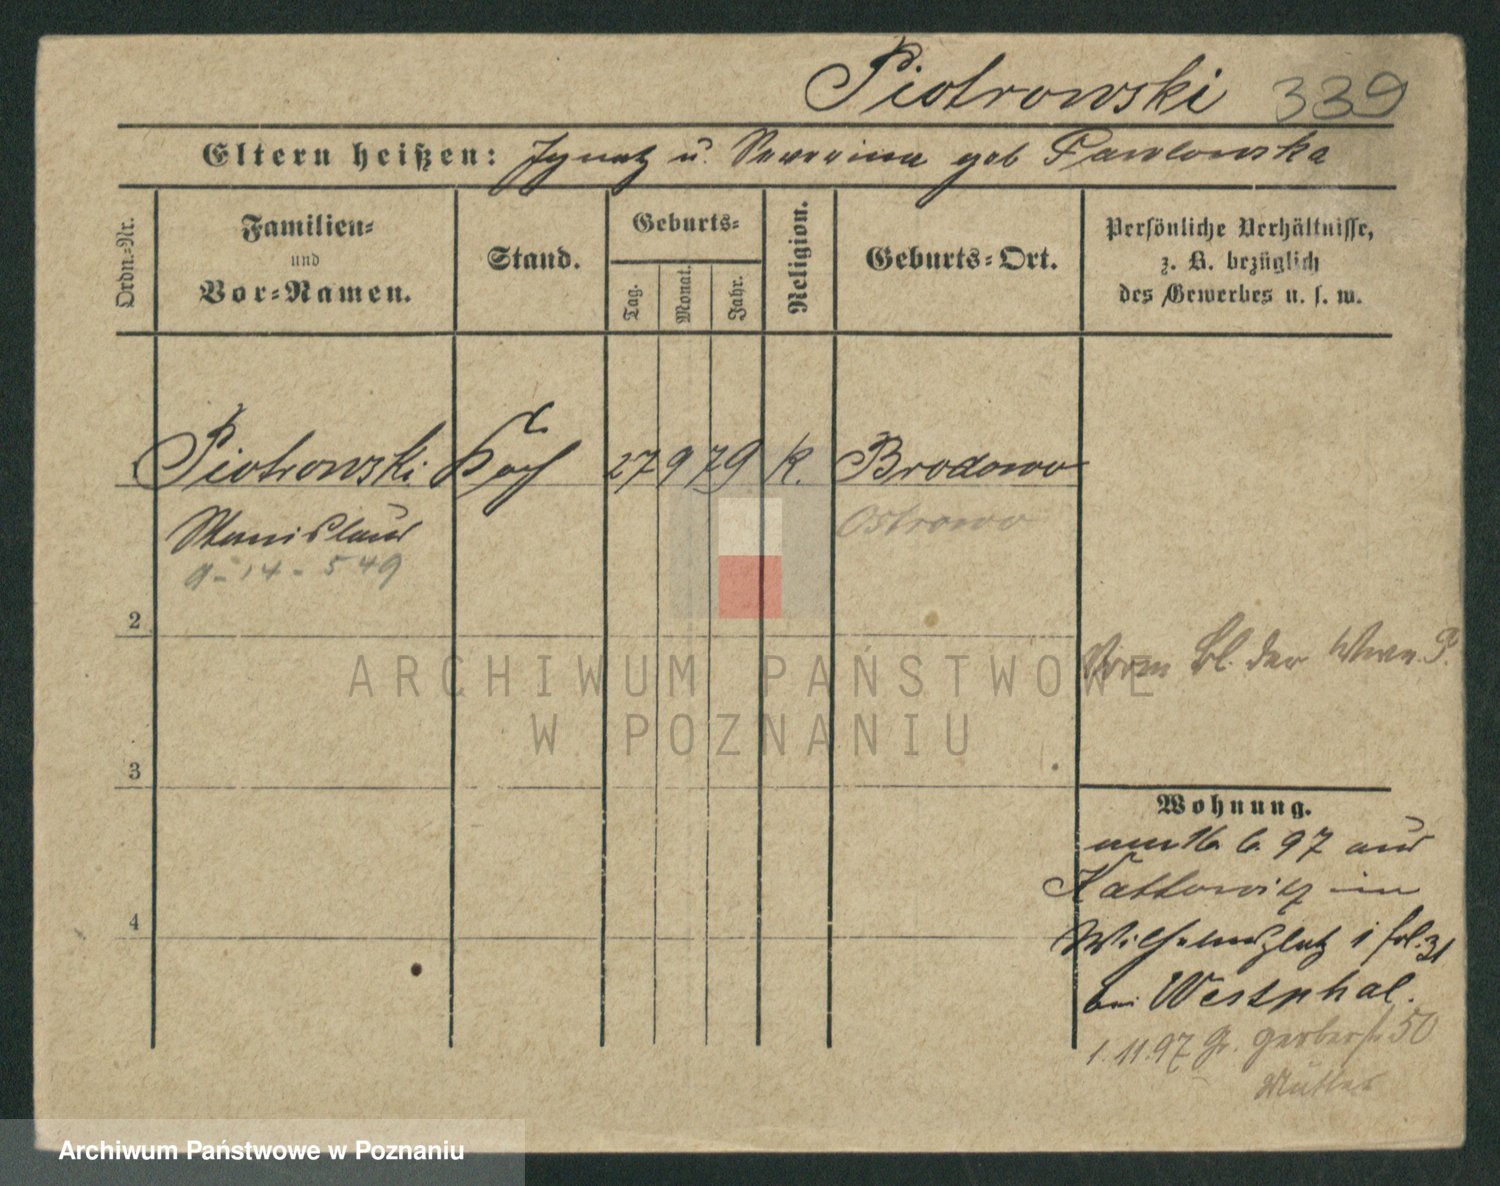 Piotrowski 339
Eltern heißen: Ignatz u. Severina geb Pawlowska
Ordn.-Nr.
Familien-
und
Vor-Namen.
Stand.
Geburts-
Tag.
Monat.
Jahr.
Religion.
Geburts-Ort.
Persönliche Verhältnisse,
z. B. bezüglich
des Gewerbes u. s. w.
Piotrowski Koch 27 9 79 K. Brodowo
Stanislaus Ostrowo
9-14-549
2
Vorm Bl. der Wwe. P.
ARCHIWUM PAŃSTWOWE
W POZNANIU
3
Wohnung.
16. 6. 97 aus
Kattowitz in
4
Wilhelmsplatz
bei Westphal.
1.11.97 Gr. Gerberstr 50
Mutter
Archiwum Państwowe w Poznaniu